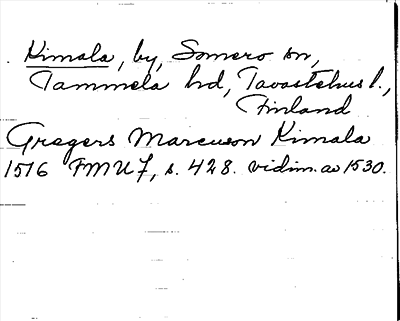 Kimala, by, Somero sn,
Tammela hd, Tavastehus l.,
Finland
Gregers Marcusson Kimala
1516 FMU 7, s. 428. vidim. av 1530.